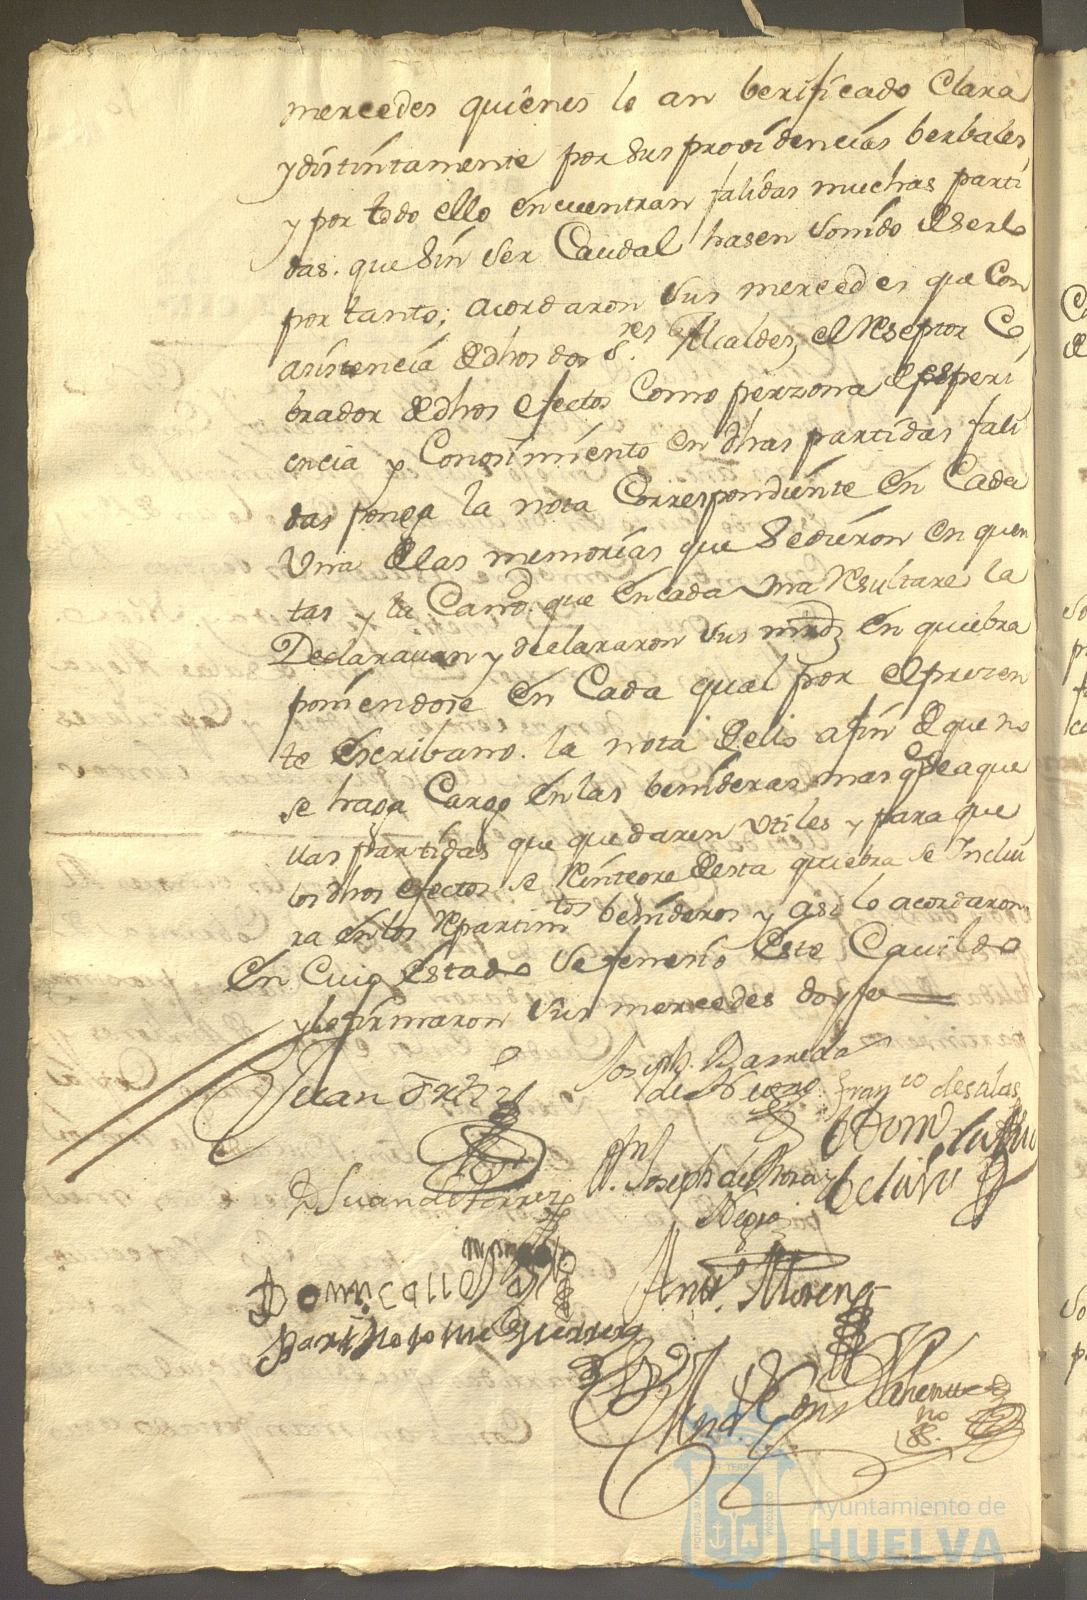 mercedes quienes lo an berificado Clara
y distintamente por sus providencias berbales
y por todo ello encuentran falidas muchas parti
das. que sin ser Caudal hasen sonido de serlo
por tanto; acordaron sus mercedes que Con
asistencia de dhos dos S.res Alcaldes, el Reseptor Co
brador de dhos efectos Como perzona de esperi
encia y Conosimiento en dhas partidas fali
das ponga la nota Correspondiente en Cada
Una de las memorias que se dieron en quen
tas y la Cantd. que en cada una resultare la
Declaravan y declararon sus mrds en quiebra
poniendose en Cada qual por el prezen
te escribano. la nota de ello a fin de que no
se haga Cargo en las benideras mas q de aque
llas partidas que quedaren utiles y para que
los dhos efectos se Reintegre de esta quiebra se Inclui
ra en los Repartimtos benideros y asi lo acordaron,
En Cuio estado se fenerio Este Cavildo
y lo firmaron sus mercedes doy fee
Juan Ortiz
Joseph. Barreda
de Bueno
Franco de salas
Dn Juan de Torrez
Dn. Joseph de Mora y
Negro
Domi
Bartholome Guerrero
Anto. Moreno
And.
no
SS.
Ayuntamiento de
HUELVA